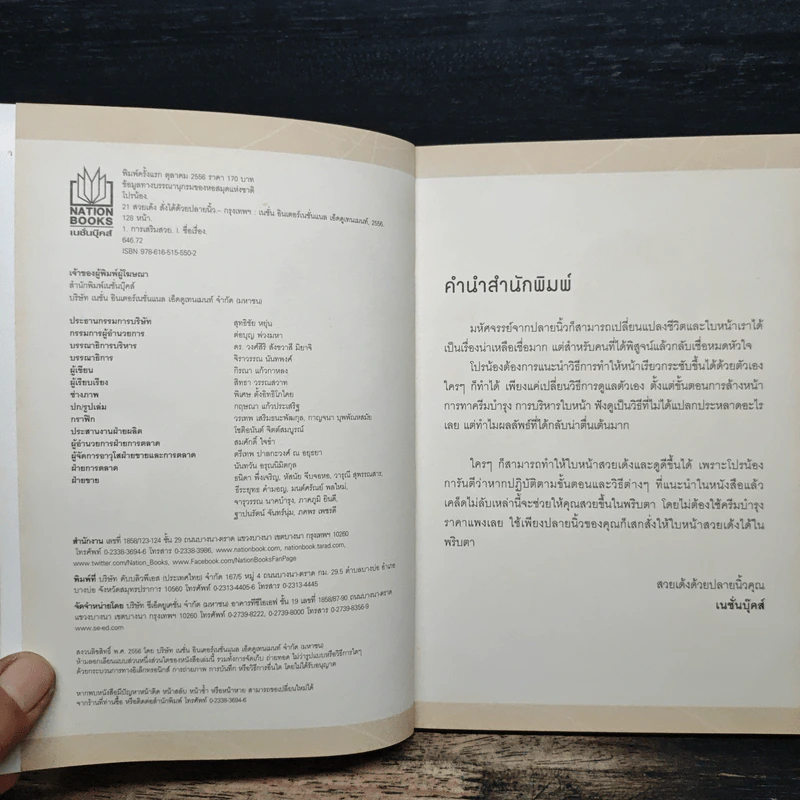 NATION
BOOKS
เนชั่นบุ๊คส์
พิมพ์ครั้งแรก ตุลาคม 2556 ราคา 170 บาท
ข้อมูลทางบรรณานุกรมของหอสมุดแห่งชาติ
โปรน้อง.
21 สวยเด้ง สั่งได้ด้วยปลายนิ้ว.-- กรุงเทพฯ : เนชั่น อินเตอร์เนชั่นแนล เอ็ดดูเทนเมนท์, 2556.
128 หน้า.
1. การเสริมสวย. I. ชื่อเรื่อง.
646.72
ISBN 978-616-515-550-2
เจ้าของผู้พิมพ์ผู้โฆษณา
สำนักพิมพ์เนชั่นบุ๊คส์
บริษัท เนชั่น อินเตอร์เนชั่นแนล เอ็ดดูเทนเมนท์ จำกัด (มหาชน)
ประธานกรรมการบริษัท สุทธิชัย หยุ่น
กรรมการผู้อำนวยการ ต่อบุญ พ่วงมหา
บรรณาธิการบริหาร ดร. วงศ์สิริ สังขวาสี มิยาจิ
บรรณาธิการ จิราวรรณ นันทพงศ์
ผู้เขียน กิรณา แก้วกาหลง
ผู้เรียบเรียง สิทธา วรรณสวาท
ช่างภาพ พิเศษ ตั้งอิทธิโภไดย
ปก/รูปเล่ม กฤษณา แก้วประเสริฐ
กราฟิก วรเทพ เสริมธนะพัฒกุล, กาญจนา บุพพัณหสมัย
ประสานงานฝ่ายผลิต โชติอนันต์ จิตต์สมบูรณ์
ผู้อำนวยการฝ่ายการตลาด สมศักดิ์ ใจขำ
ผู้จัดการอาวุโสฝ่ายขายและการตลาด ตรีเทพ ปาลกะวงศ์ ณ อยุธยา
ฝ่ายการตลาด นันทวัน อรุณนิมิตกุล
ฝ่ายขาย ธนิดา พึ่งเจริญ, หัสนัย จีบจอหอ, วารุณี สุพรรณสาร,
ธีระยุทธ คำมอญ, มนต์ศรัณย์ พลใหม่,
จารุวรรณ นาคบำรุง, ภาคภูมิ ยินดี,
ฐาปนรัตน์ จันทร์นุ่ม, ภคพร เพชรดี
สำนักงาน เลขที่ 1858/123-124 ชั้น 29 ถนนบางนา-ตราด แขวงบางนา เขตบางนา กรุงเทพฯ 10260
โทรศัพท์ 0-2338-3694-6 โทรสาร 0-2338-3986, www.nationbook.com, nationbook.tarad.com,
www.twitter.com/Nation_Books, www.Facebook.com/NationBooksFanPage
พิมพ์ที่ บริษัท ดับบลิวพีเอส (ประเทศไทย) จำกัด 167/5 หมู่ 4 ถนนบางนา-ตราด กม. 29.5 ตำบลบางบ่อ อำเภอ
บางบ่อ จังหวัดสมุทรปราการ 10560 โทรศัพท์ 0-2313-4405-6 โทรสาร 0-2313-4445
จัดจำหน่ายโดย บริษัท ซีเอ็ดยูเคชั่น จำกัด (มหาชน) อาคารทีซีไอเอฟ ชั้น 19 เลขที่ 1858/87-90 ถนนบางนา-ตราด
แขวงบางนา เขตบางนา กรุงเทพฯ 10260 โทรศัพท์ 0-2739-8222, 0-2739-8000 โทรสาร 0-2739-8356-9
www.se-ed.com
สงวนลิขสิทธิ์ พ.ศ. 2556 โดย บริษัท เนชั่น อินเตอร์เนชั่นแนล เอ็ดดูเทนเมนท์ จำกัด (มหาชน)
ห้ามลอกเลียนแบบส่วนหนึ่งส่วนใดของหนังสือเล่มนี้ รวมทั้งการจัดเก็บ ถ่ายทอด ไม่ว่ารูปแบบหรือวิธีการใดๆ
ด้วยกระบวนการทางอิเล็กทรอนิกส์ การถ่ายภาพ การบันทึก หรือวิธีการอื่นใด โดยไม่ได้รับอนุญาต
หากพบหนังสือมีปัญหาหน้าติด หน้าสลับ หน้าซ้ำ หรือหน้าหาย สามารถขอเปลี่ยนใหม่ได้
จากร้านที่ท่านซื้อ หรือติดต่อสำนักพิมพ์ โทรศัพท์ 0-2338-3694-6
คำนำสำนักพิมพ์
มหัศจรรย์จากปลายนิ้วก็สามารถเปลี่ยนแปลงชีวิตและใบหน้าเราได้
เป็นเรื่องน่าเหลือเชื่อมาก แต่สำหรับคนที่ได้พิสูจน์แล้วกลับเชื่อหมดหัวใจ
โปรน้องต้องการแนะนำวิธีการทำให้หน้าเรียวกระชับขึ้นได้ด้วยตัวเอง
ใครๆ ก็ทำได้ เพียงแค่เปลี่ยนวิธีการดูแลตัวเอง ตั้งแต่ขั้นตอนการล้างหน้า
การทาครีมบำรุง การบริหารใบหน้า ฟังดูเป็นวิธีที่ไม่ได้แปลกประหลาดอะไร
เลย แต่ทำไมผลลัพธ์ที่ได้กลับน่าตื่นเต้นมาก
ใครๆ ก็สามารถทำให้ใบหน้าสวยเด้งและดูดีขึ้นได้ เพราะโปรน้อง
การันตีว่าหากปฏิบัติตามขั้นตอนและวิธีต่างๆ ที่แนะนำในหนังสือแล้ว
เคล็ดไม่ลับเหล่านี้จะช่วยให้คุณสวยขึ้นในพริบตา โดยไม่ต้องใช้ครีมบำรุง
ราคาแพงเลย ใช้เพียงปลายนิ้วของคุณก็เสกสั่งให้ใบหน้าสวยเด้งได้ใน
พริบตา
สวยเด้งด้วยปลายนิ้วคุณ
เนชั่นบุ๊คส์